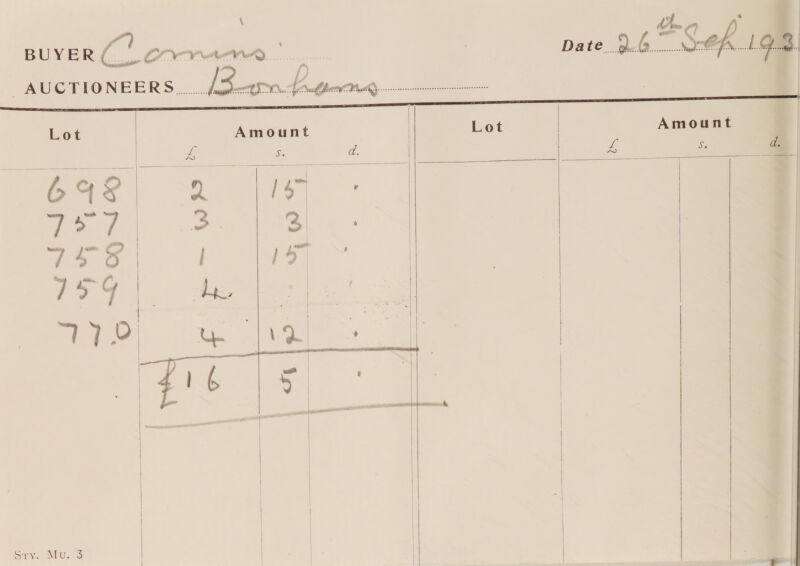 BUYER Comins
Date 26th Sep 193
AUCTIONEERS Bonhams
Lot Amount Lot Amount
£ s. d. £ s. d.
698 2 15 .
757 3 3 .
758 1 15 .
759 4 . .
770 4 12 .
£16 5 .
STY. MU. 3